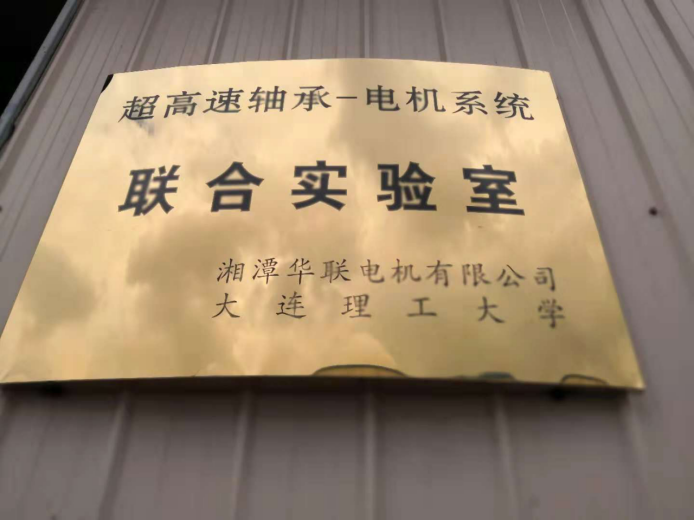 超高速轴承-电机系统
联合实验室
湘潭华联电机有限公司
大连理工大学